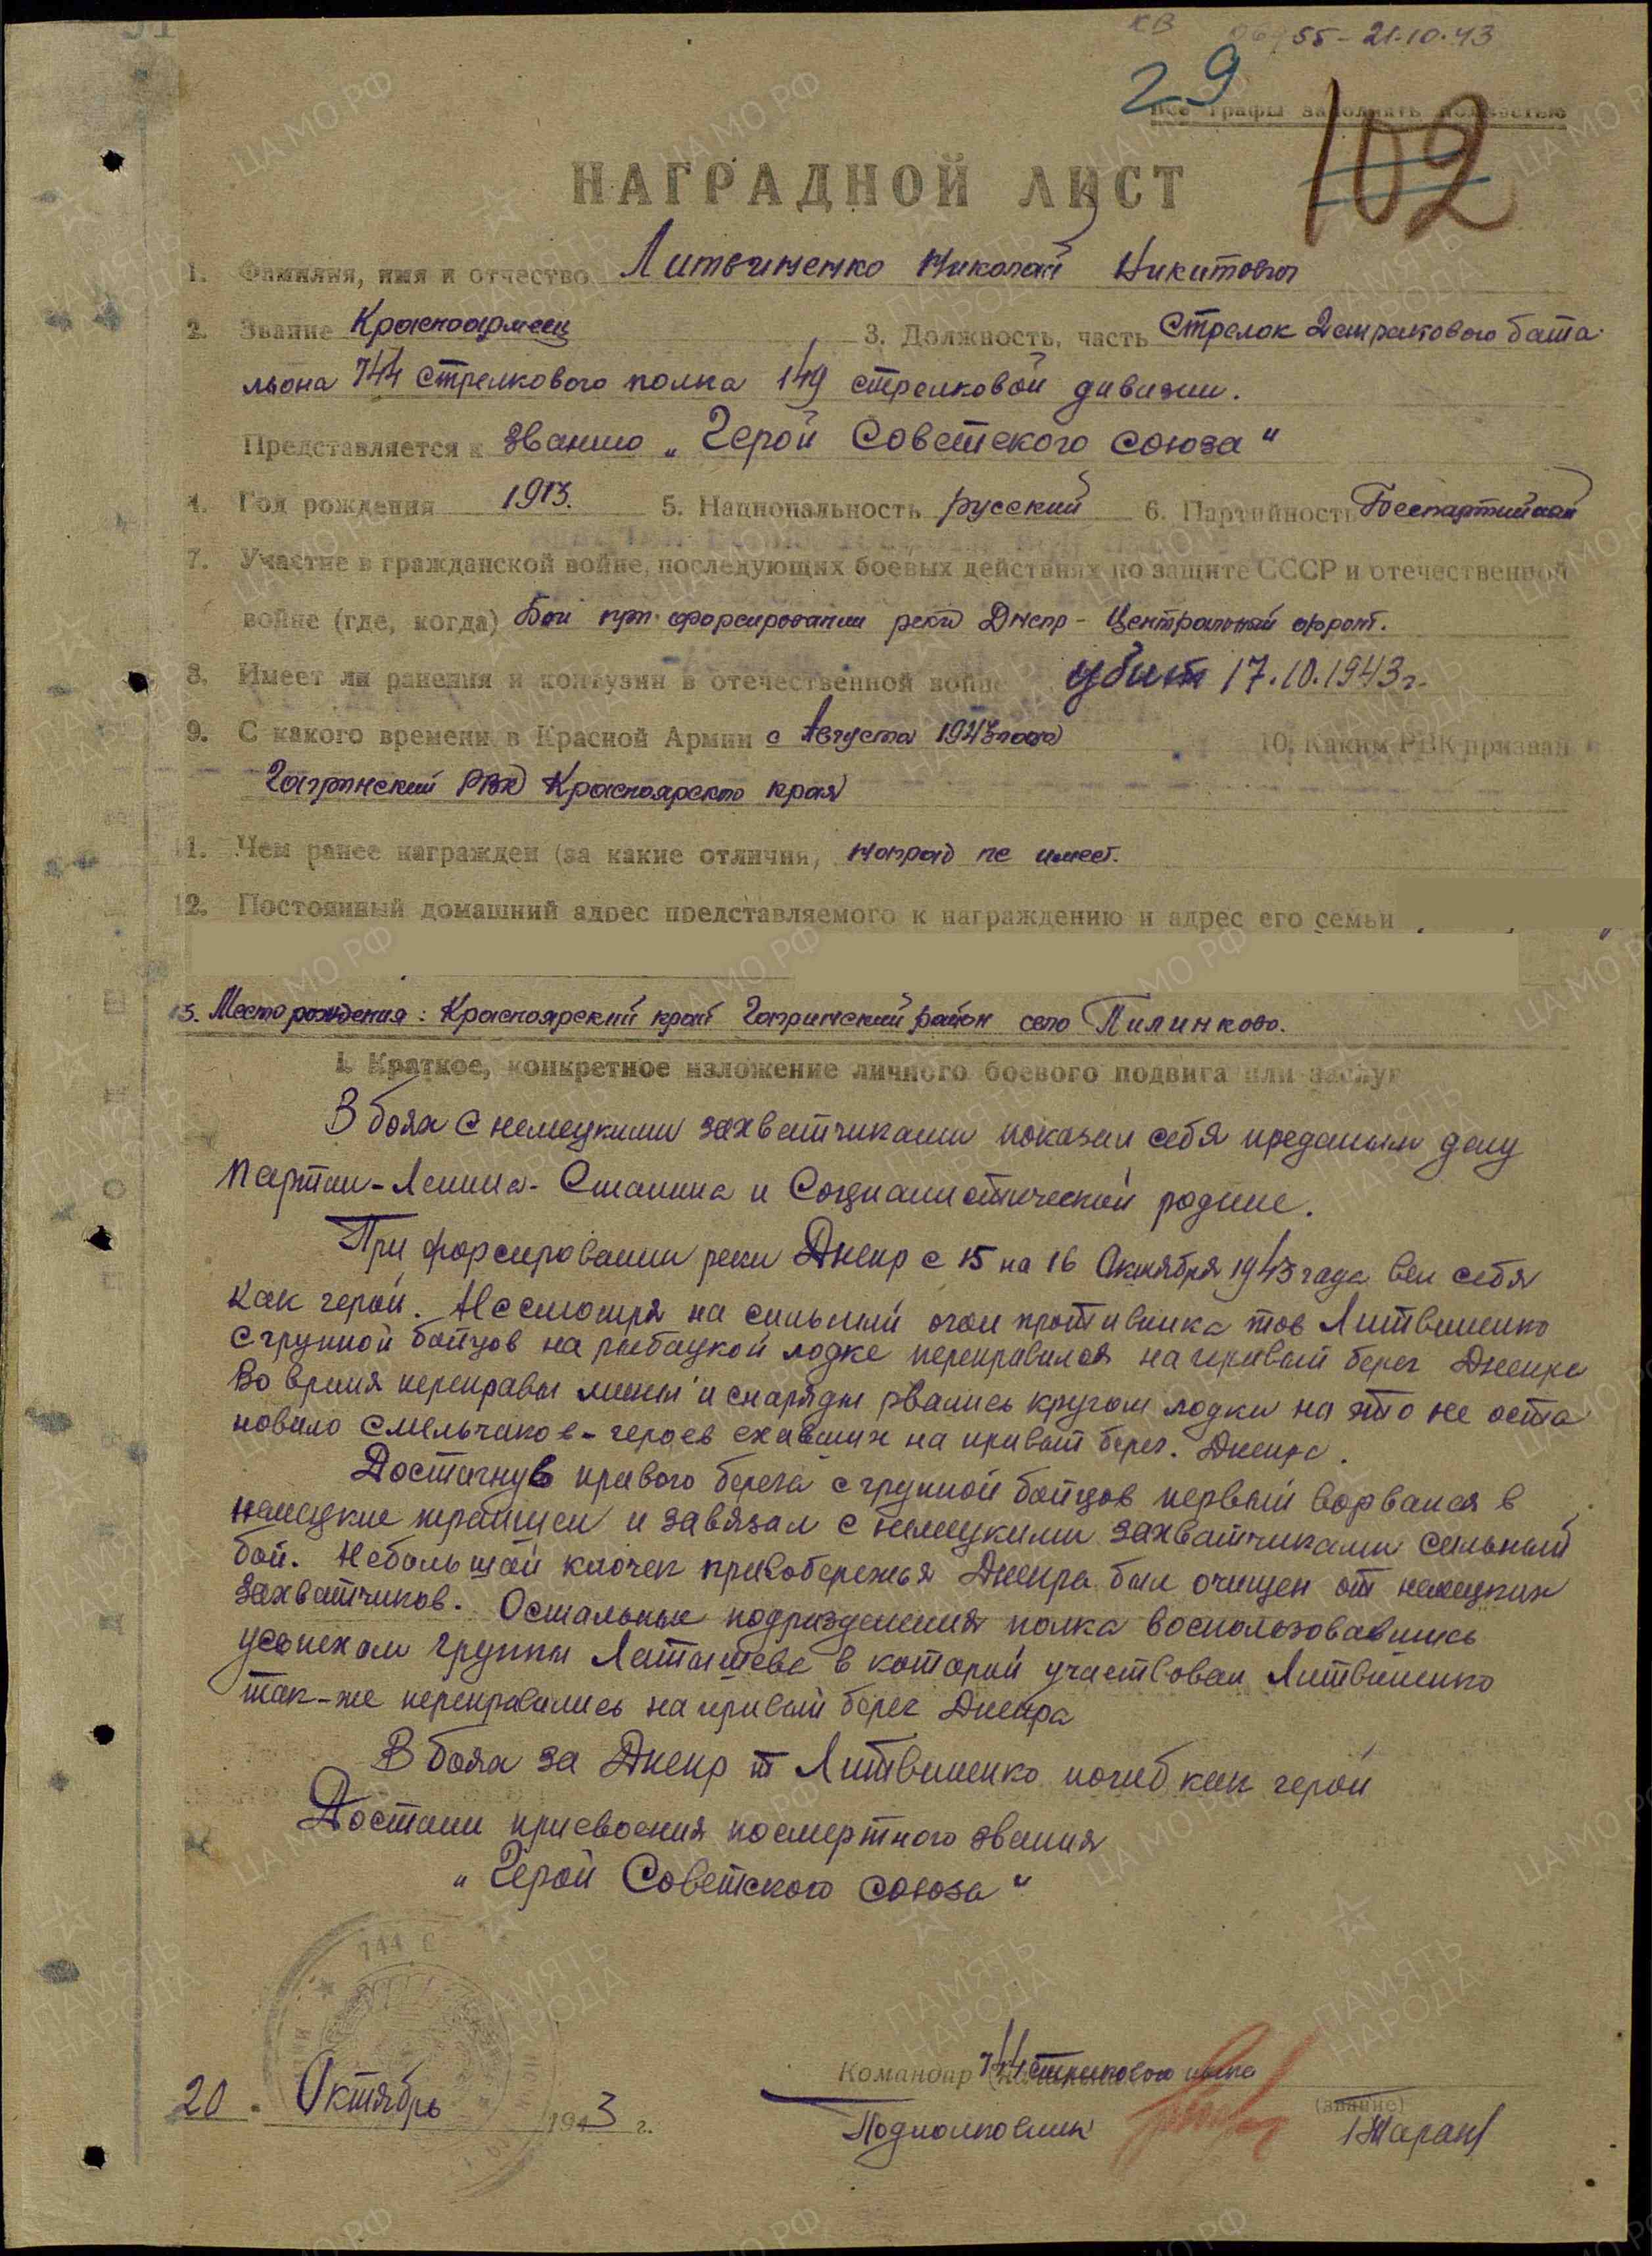 55-21.10.43
29
Все графы заполнять полностью
102
НАГРАДНОЙ ЛИСТ
1. Фамилия, имя и отчество Литвиненко Николай Никитович
2. Звание Красноармеец 3. Должность, часть Стрелок 2 стрелкового бата-
льона 744 стрелкового полка 149 стрелковой дивизии.
Представляется к званию „Герой Советского союза"
4. Год рождения 1913. 5. Национальность русский 6. Партийность Беспартийный
7. Участие в гражданской войне, последующих боевых действиях по защите СССР и отечественной
войне (где, когда) Бои при форсировании реки Днепр - Центральный фронт.
8. Имеет ли ранения и контузии в отечественной войне убит 17.10.1943г.
9. С какого времени в Красной Армии с Августа 1943 года 10. Каким РВК призван
РВК Красноярского края
11. Чем ранее награжден (за какие отличия) наград не имеет.
12. Постоянный домашний адрес представляемого к награждению и адрес его семьи
13. Место рождения: Красноярский край район село Пилинково.
I. Краткое, конкретное изложение личного боевого подвига или заслуг
В боях с немецкими захватчиками показал себя преданым делу
партии-Ленина-Сталина и Социалистической родине.
При форсировании реки Днепр с 15 на 16 Октября 1943 года вел себя
как герой. Несмотря на сильный огонь противника тов Литвиненко
с группой бойцов на рыбацкой лодке переправился на правый берег Днепра
Во время переправы мины и снаряды рвались кругом лодки но это не оста
новило смельчаков-героев ехавших на правый берег. Днепра.
Достигнув правого берега с группой бойцов первый ворвался в
немецкие траншеи и завязал с немецкими захватчиками сильный
бой. Небольшой клочек правобережья Днепра был очищен от немецких
захватчиков. Остальные подразделения полка воспользовавшись
успехом группы Латышева в которой участвовал Литвиненко
так-же переправились на правый берег Днепра
В боях за Днепр т Литвиненко погиб как герой
Достоин присвоения посмертного звания
„Герой Советского союза"
744 С
Командир 744 стрелкового полка
(звание)
20. Октябрь 1943 г.
Подполковник